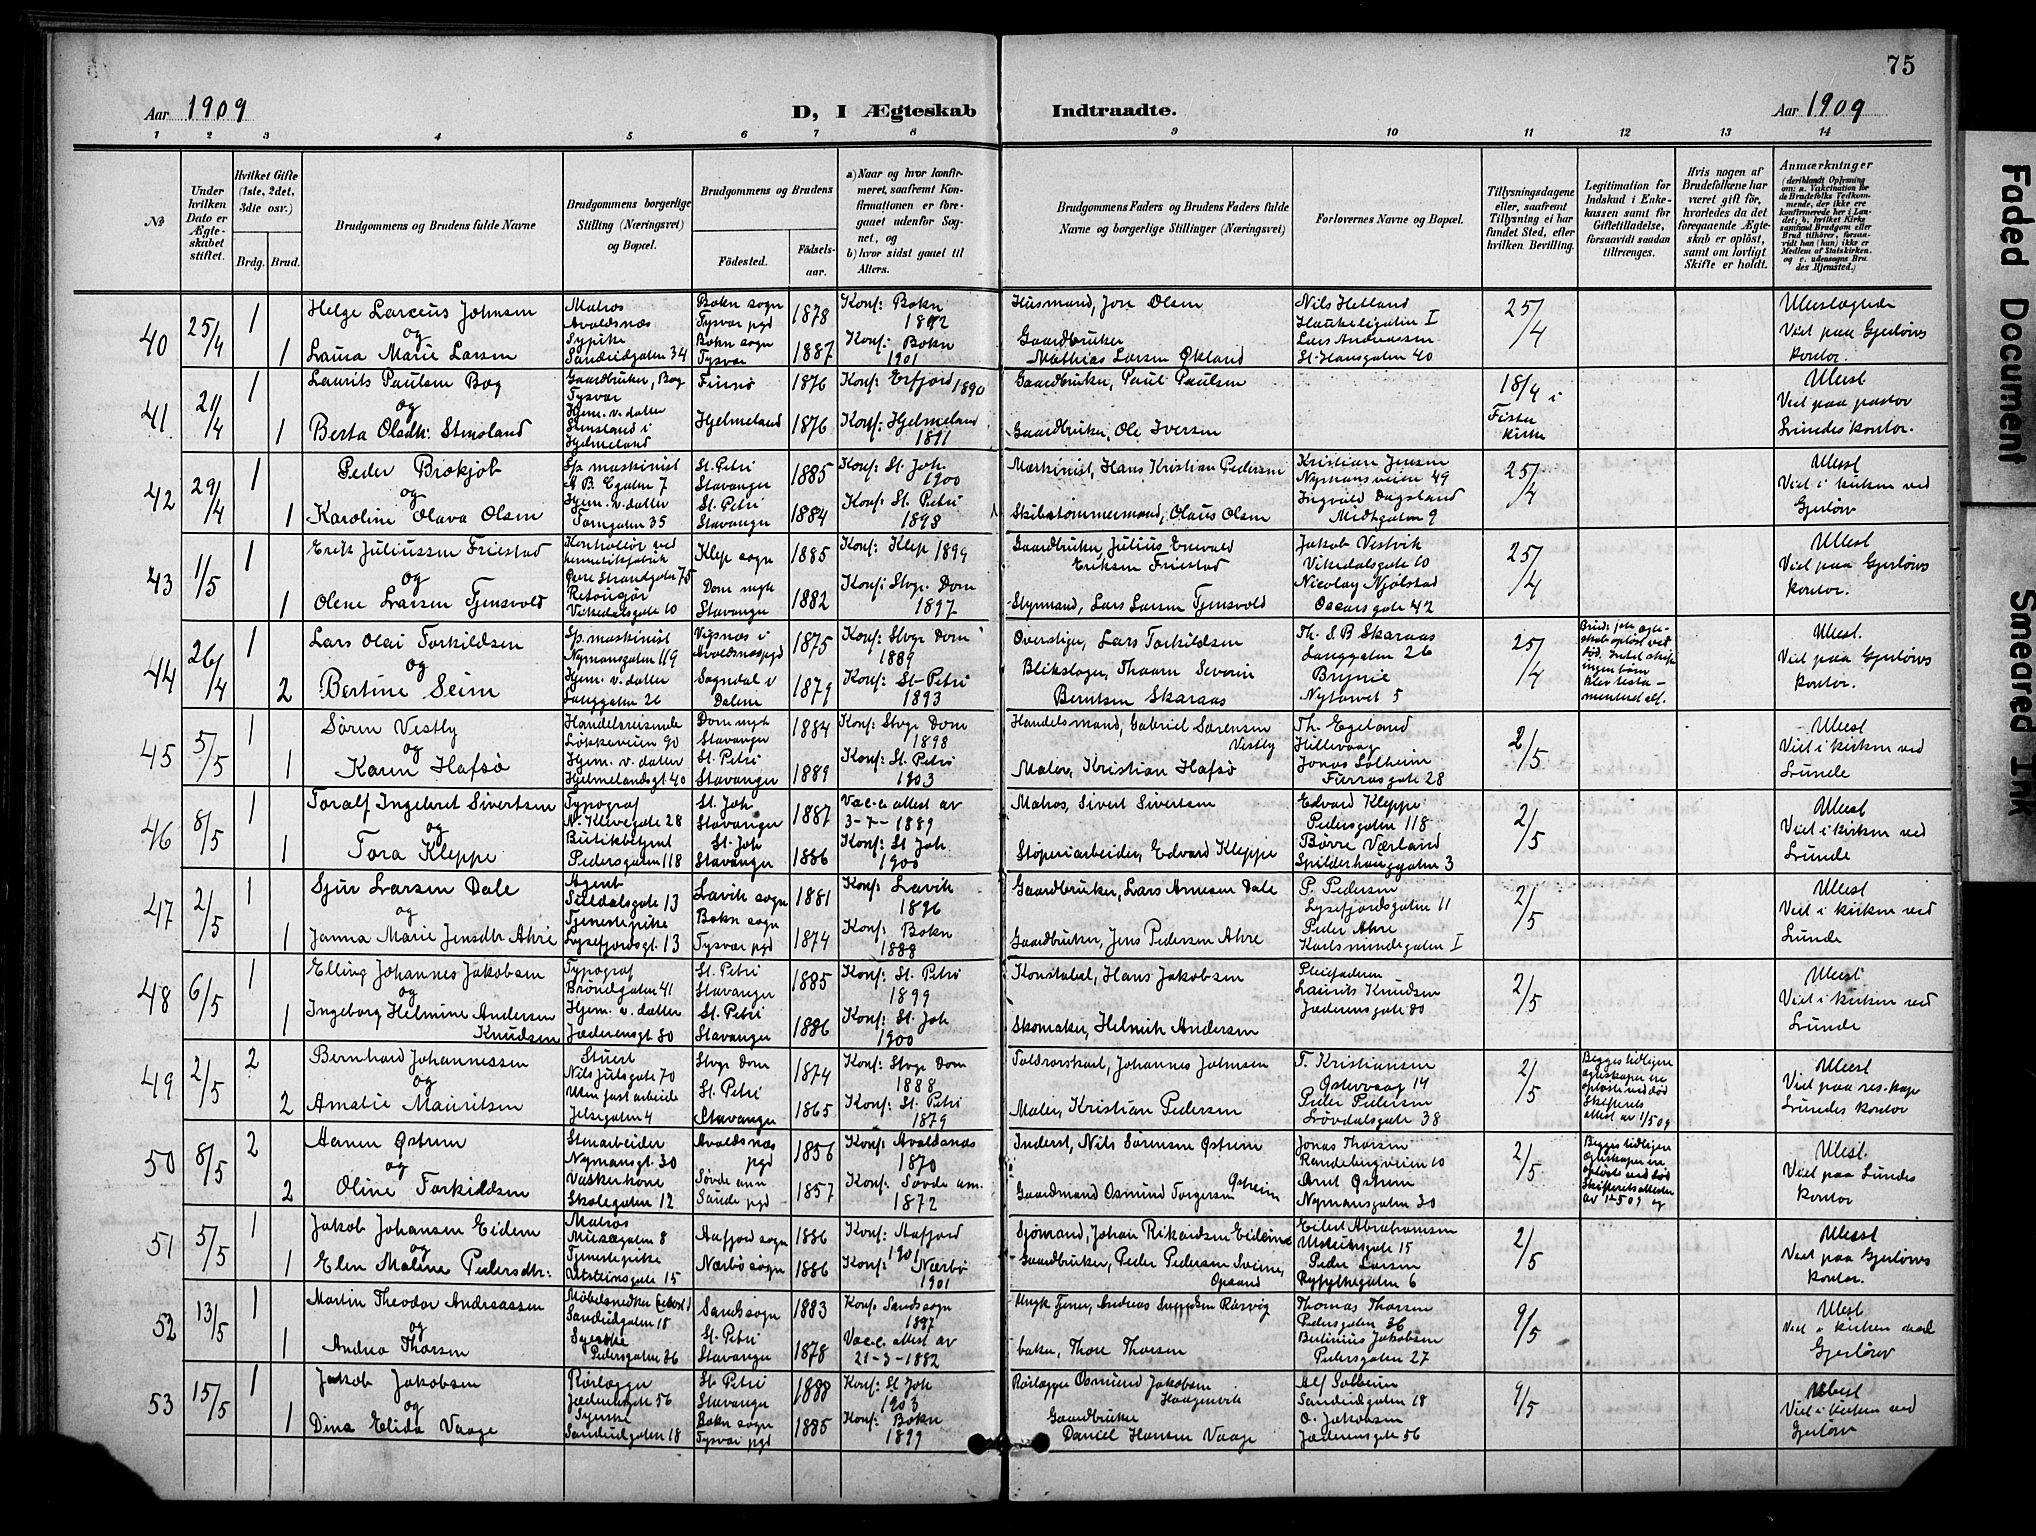 75
Aar 1909
D, I Ægteskab Indtraadte.
Aar 1909
1 2 3 4 5 6 7 8 9 10 11 12 13 14
No
Under hvilken Dato er Ægteskabet stiftet.
Hvilket Gifte (1ste, 2det, 3die osv.)
Brdg. Brud.
Brudgommens og Brudens fulde Navne
Brudgommens borgerlige Stilling (Næringsvei) og Bopæl.
Brudgommens og Brudens
Födested.
Födselsaar.
a) Naar og hvor konfirmeret, saafremt Konfirmationen er foregaaet udenfor Sognet, og
b) hvor sidst gaaet til Alters.
Brudgommens Faders og Brudens Faders fulde Navne og borgerlige Stillinger (Næringsvei)
Forlovernes Navne og Bopæl.
Tillysningsdagene eller, saafremt Tillysning ei har fundet Sted, efter hvilken Bevilling.
Legitimation for Indskud i Enkekassen samt for Giftetilladelse, forsaavidt saadan tiltrænges.
Hvis nogen af Brudefolkene har været gift før, hvorledes da det foregaaende Ægteskab er opløst, samt om lovligt Skifte er holdt.
Anmærkninger (deriblandt Oplysning om: a. Vakcination for de Brudefolks Vedkommende, der ikke ere konfirmerede her i Landet; b. hvilket Kirkesamfund Brudgom eller Brud tilhører, forsaavidt han (hun) ikke er Medlem af Statskirken, og c. udensogns Brudes Hjemsted.)
40 25/4 1 Helge Larcius Johnsen Matros Avaldsnæs Bokn sogn Tysvær pgd 1878 Konf: Bokn 1892 Husmand, Jon Olsen Nils Hetland Haukeligaten I 25/4 Ubeslægtede
og
1 Laura Marie Larsen Sypike Sandeidgaten 34 Bokn sogn Tysvær 1887 Konf: Bokn 1901 Gaardbruker Mathias Larsen Økland Lars Andreassen St. Hansgaten 40 Viet paa Gjerløws kontor.
41 21/4 1 Laurits Paulsen Bog Gaardbruker, Bog Tysvær Finnø 1876 Konf: Erfjord 1890 Gaardbruker, Paul Paulsen 18/4 i Fister kirke Ubesl
og
1 Berta Olsdtr. Hjem. v. datter Hjelmeland Hjelmeland 1876 Konf: Hjelmeland 1891 Gaardbruker, Ole Iversen Viet paa pastor Lundes kontor.
42 29/4 1 Peder Brekjøb Sp. maskinist 7 St. Petri Stavanger 1885 Konf: St. Joh. 1900 Maskinist, Hans Kristian Pedersen Kristian Jensen Nymansveien 49 25/4 Ubesl
og
1 Karoline Olava Olsen Hjem. v. datter 35 St. Petri Stavanger 1884 Konf: St. Petri 1898 Skibstømmermand, Olaus Olsen Ingvald Dagsland Midtgaten 9 Viet i kirken ved Gjerløw
43 1/5 1 Erik Juliussen Friestad Kontrollør ved hermetikfabrik Øvre Strandgate 75 Klep sogn 1885 Konf: Klep 1899 Gaardbruker, Julius Enevald Eriksen Friestad Jakob Vestvik Vikedalsgate 10 25/4 Ubesl
og
1 Olene Larsen Tjensvold Vikedalsgate 10 Dom mgh Stavanger 1882 Konf: Stvgr. Dom 1897 Styrmand, Lars Larsen Tjensvold Nicolay Njølstad Oscarsgate 42 Viet paa Gjerløws kontor.
44 26/4 1 Lars Olai Torkildsen Sp. maskinist Nymansgaten 119 Vigsnæs i Avaldsnæs pgd 1875 Konf: Stvgr Dom 1889 Overstiger, Lars Torkildsen Th. S. B. Skaraas Langgaten 26 25/4 Ubesl.
og
2 Bertine Seim Hjem. v. datter Langgaten 26 Sogndal i Dalene 1879 Konf: St. Petri 1893 Blikslager, Thaarn Severin Berntsen Skaraas Brynie Nytorvet 5 Viet paa Gjerløws kontor.
45 5/5 1 Søren Vestly Handelsreisende Løkkeveien 90 Dom mgh Stavanger 1884 Konf: Stvgr Dom 1898 Handelsmand, Gabriel Sørensen Vestly Th. Egeland Hillevaag 2/5 Ubesl
og
1 Karen Hafsø Hjem. v. datter Hjelmelandsgt 40 St. Petri Stavanger 1889 Konf: St. Petri 1903 Maler, Kristian Hafsø Jonas Solheim Furrasgate 28 Viet i kirken ved Lunde
46 8/5 1 Toralf Ingebret Sivertsen Typograf N. Kleivegate 28 St. Joh Stavanger 1887 Vac.c. attest av 3-7-1889 Matros, Sivert Sivertsen Edvard Kleppe Pedersgaten 118 2/5 Ubesl
og
1 Tora Kleppe Butikbetjent Pedersgaten 118 St. Joh Stavanger 1886 Konf: St. Joh. 1900 Støperiarbeider, Edvard Kleppe Børre Værland Spilderhauggaten 3 Viet i kirken ved Lunde
47 2/5 1 Sjur Larsen Dale Agent Suldalsgate 13 Lavik sogn 1881 Konf: Lavik 1896 Gaardbruker, Lars Arnesen Dale P. Pedersen Lysefjordsgaten 11 2/5 Ubesl
og
1 Janna Marie Jensdtr Ahre Tjenestepike Lysefjordsgt. 13 Bokn sogn Tysvær pgd 1874 Konf: Bokn 1888 Gaardbruker, Jens Pedersen Ahre Peder Ahre Karlsmindegaten I Viet i kirken ved Lunde
48 6/5 1 Elling Johannes Jakobsen Typograf Brøndgaten 41 St. Petri Stavanger 1885 Konf: St. Petri 1899 Konstabel, Hans Jakobsen Pleiefaderen Laurits Knudsen Jæderensgate 80 2/5 Ubesl
og
1 Ingeborg Helmine Andersen Knudsen Hjem. v. datter Jæderensgt 80 St. Petri Stavanger 1886 Konf: St. Joh 1900 Skomaker, Helmik Andersen Viet i kirken ved Lunde
49 2/5 2 Bernhard Johannessen Stuert Nils Juelsgate 70 Stvgr Dom 1874 Konf: Stvgr Dom 1888 Toldrorskarl, Johannes Johnsen T. Kristiansen Østervaag 14 2/5 Begges tidligere egteskaper ere opløste ved død Skifterets attest av 1/5 09 Ubesl
og
2 Amalie Mauritsen Uten fast arbeide Jelsegaten 4 St. Petri Stavanger 1865 Konf: St. Petri 1879 Maler, Kristian Pedersen Peder Pedersen Løvdalsgate 38 Viet paa res. kap Lundes kontor
50 8/5 2 Østrem Stenarbeider Nymansgt. 30 Avaldsnæs pgd 1856 Konf: Avaldsnæs 1870 Inderst, Nils Sørensen Østrem Jonas Thorsen Randebergveien 10 2/5 Begges tidligere egteskaper ere opløste ved død Ubesl.
og
2 Oline Torkildsen Vaskerkone Skolegaten 12 Søvde ann Sande pgd 1857 Konf: Søvde ann. 1872 Gaardmand Osmund Torgersen Østrem Arnt Østrem Nymansgaten 30 Viet paa Lundes kontor
51 5/5 1 Jakob Johansen Eidem Matros Musægaten 8 Aafjord sogn 1886 Konf: Aafjord 1901 Sjømand, Johan Rikardsen Eidem Eilert Abrahamsen Utsteinsgate 15 2/5 Ubesl
og
1 Elen Maline Pedersdtr: Tjenestepike Utsteinsgate 15 Nærbø sogn 1886 Konf: Nærbø 1901 Gaardbruker, Peder Pedersen Peder Larsen Ryfylkegaten 6 Viet paa Gjerløws kontor.
52 13/5 1 Martin Theodor Andreassen Møbelsnedker Sandeidgaten 18 Sands sogn 1883 Konf: Sands sogn 1897 Andreas Thomas Thorsen Pedersgaten 36 9/5 Ubesl
og
1 Andrea Thorsen Syerske Pedersgaten 36 St. Petri Stavanger 1878 Vac.c. attest av 21-3-1882 baker, Thore Thorsen Berlinius Jakobsen Pedersgaten 27 Viet i kirken ved Gjerløw
53 15/5 1 Jakob Jakobsen Rørlægger Jæderensgate 56 St. Petri Stavanger 1888 Konf: St Joh 1903 Rørlægger Osmund Jakobsen Haagenvik Alf Solheim Sandeidgaten 18 9/5 Ubesl
og
1 Dina Elida Vaage Syerske Sandeidgaten 18 Bokn sogn Tysvær pgd 1885 Konf: Bokn 1899 Gaardbruker Daniel Hansen Vaage O. Jakobsen Jæderensgate 56 Viet i kirken ved Gjerløw
Faded Document
Smeared Ink